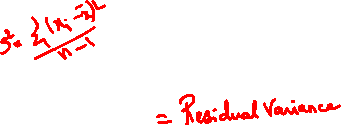 S² = Σ(xᵢ - x̄)² / n - 1
= Residual Variance